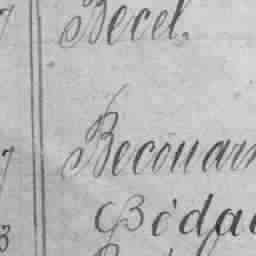 Becel.
Becouarn
Béda